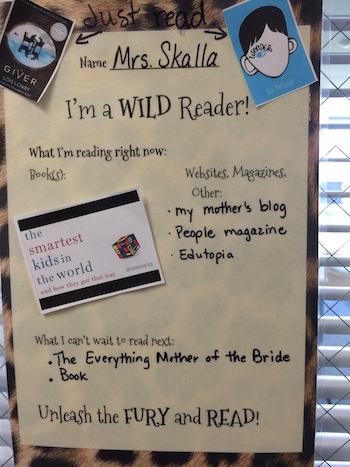 Just read
THE
GIVER
LOIS LOWRY
wonder
Name Mrs. Skalla
I'm a WILD Reader!
What I'm reading right now:
Book(s):
Websites, Magazines,
Other:
· my mother's blog
· People magazine
· Edutopia
the
smartest
kids in
the world
and how they got that way
What I can't wait to read next:
• The Everything Mother of the Bride
• Book
Unleash the FURY and READ!